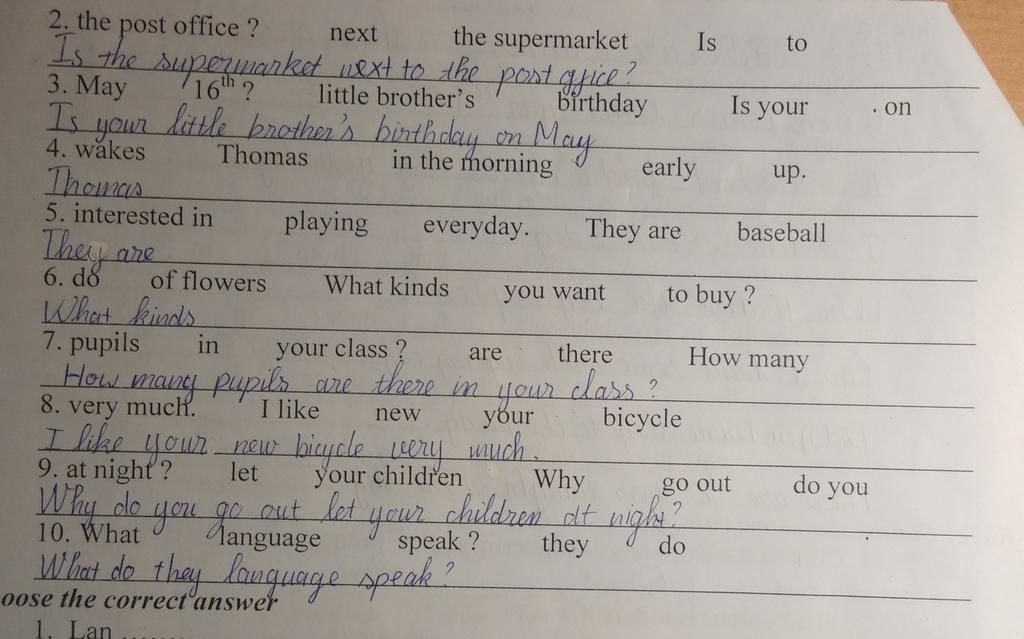 2. the post office ? next the supermarket Is to
Is the supermarket next to the post office?
3. May 16th ? little brother's birthday Is your on
Is your little brother's birthday on May
4. wakes Thomas in the morning early up.
Thomas
5. interested in playing everyday. They are baseball
They are
6. do of flowers What kinds you want to buy ?
What kinds
7. pupils in your class ? are there How many
How many pupils are there in your class ?
8. very much. I like new your bicycle
I like your new bicycle very much.
9. at night ? let your children Why go out do you
Why do you go out let your children at night?
10. What language speak ? they do
What do they language speak ?
oose the correct answer
1. Lan ......